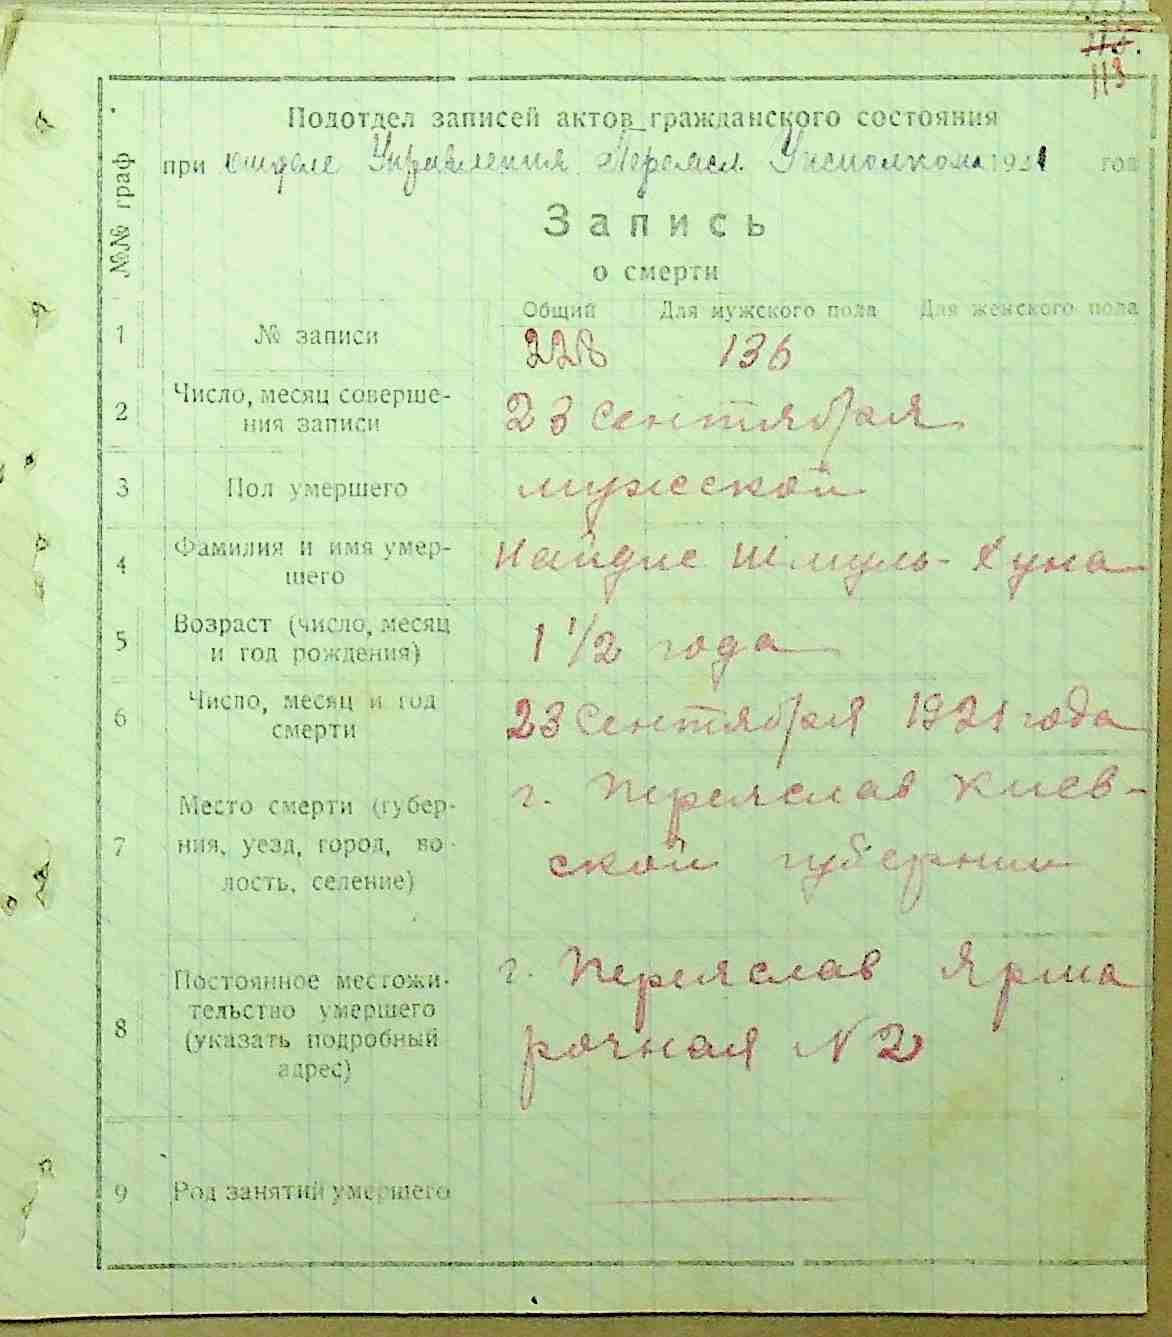 113
Подотдел записей актов гражданского состояния
при отделе Управления Переясл. Исполкома 1921 год
Запись
о смерти
№№ граф
Общий Для мужского пола Для женского пола
1 № записи 228 136
2 Число, месяц соверше-
ния записи 23 сентября
3 Пол умершего мужской
4 Фамилия и имя умер-
шего Найдис Шмуль-Хуна
5 Возраст (число, месяц
и год рождения) 1 1/2 года
6 Число, месяц и год
смерти 23 сентября 1921 года
7 Место смерти (губер-
ния, уезд, город, во-
лость, селение) г. Переяслав Киев-
ской губернии
8 Постоянное местожи-
тельство умершего
(указать подробный
адрес) г. Переяслав Ярма
рочная N 2
9 Род занятий умершего